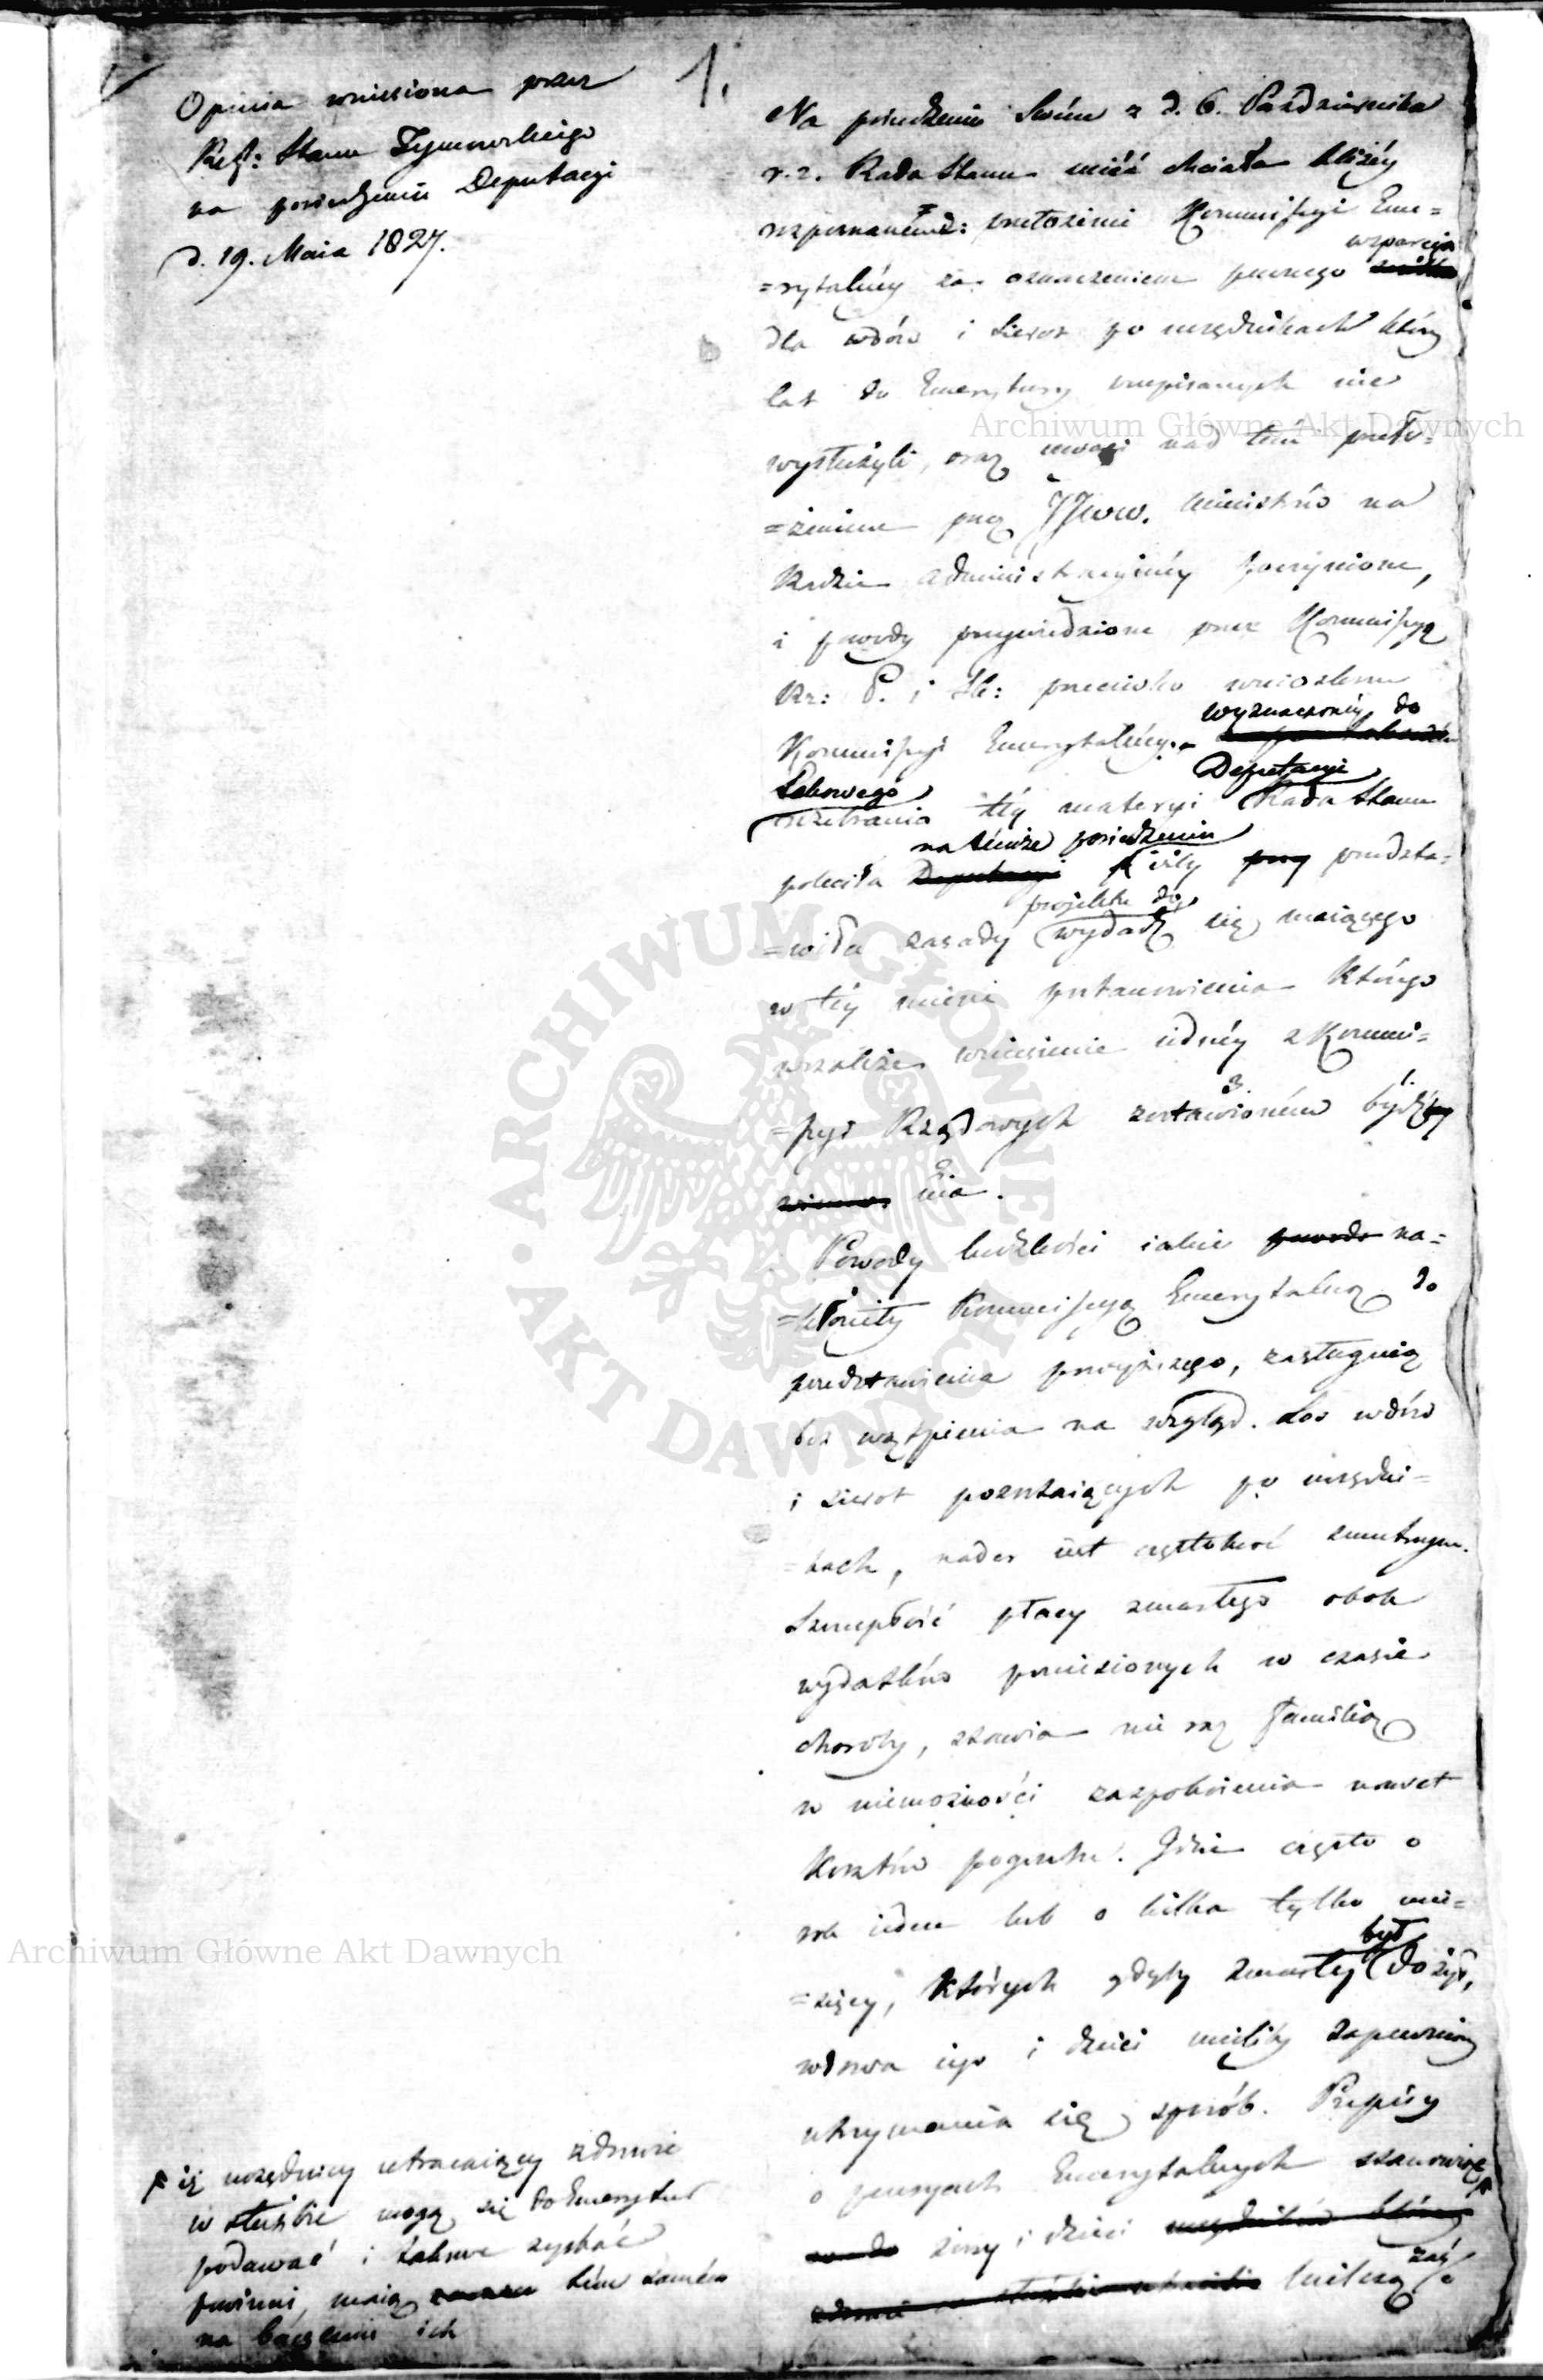 Opinia wniesiona przez
Ref: Stanu Tymowskiego
na posiedzeniu Deputacyi
d. 19. Maia 1827.
1.
Na posiedzeniu Swém z d. 6. Października
r. z. Rada Stanu mieć chciała bliżéy
rozpoznaném: przełożenie Kommissyi Eme=
=rytalnéy za oznaczeniem pewnego wsparcia
dla wdów i sierot po urzędnikach którzy
lat do Emerytury przepisanych nie
wysłużyli, oraz uwagi nad tém przeło=
=żeniem przez JJWW. Ministrów na
Radzie Administracyinéy poczynione,
i powody przywiedzione przez Kommissyą
Rz: P. i Sk: przeciwko wnioskom
Kommissyi Emerytalnéy. wyznaczonéy do
takowego rozebrania téy materyi Deputacyi Rada Stanu
poleciła na témże posiedzeniu iżby przedsta=
=wiła zasady projektu do wydadź się maiącego
w téy mierze postanowienia którego
wszakże wniesienie iednéy z Kommi=
=ssyi Rządowych zostawioném bydź
ma.
Powody ludzkości iakie na=
=kłoniły Kommissyą Emerytalną do
przedstawienia powyższego, zasługuią
bez wątpienia na wzgląd. Los wdów
i sierot pozostaiących po urzędni=
=kach, nader iest częstokroć smutnym.
Szczupłość płacy zmarłego obok
wydatków poniesionych w czasie
choroby, stawia nie raz familią
w niemożności zaspokoienia nawet
kosztów pogrzebu. Idzie często o
rok ieden lub o kilka tylko mie=
=sięcy, których gdyby zmarły był dożył,
wdowa iego i dzieci mieliby zapewniony
utrzymania się sposób. Przepisy
o pensyach Emerytalnych stanowiąc
żony i dzieci milczą zaś
iż urzędnicy utracaiący zdrowie
w służbie mogą się do Emerytur
podawać i takowe zyskać
powinni, maią tém samém
na baczeniu ich
Archiwum Główne Akt Dawnych
Archiwum Główne Akt Dawnych
ARCHIWUM GŁÓWNE AKT DAWNYCH